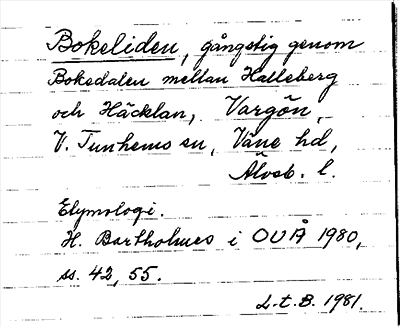 Bokeliden, gångstig genom
Bokedalen mellan Halleberg
och Häcklan, Vargön,
V. Tunhems sn, Väne hd,
Älvsb. l.
Etymologi.
H. Bartholmes i OUÅ 1980,
ss. 42, 55.
L.t.B. 1981.